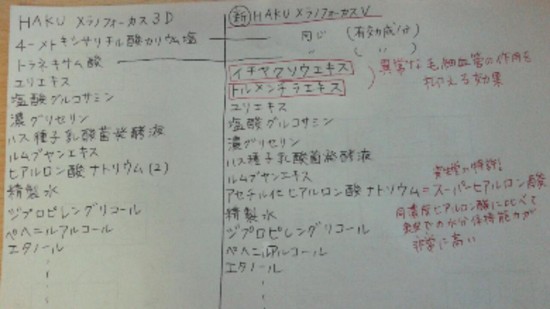 HAKU メラノフォーカス3D
4-メトキシサリチル酸カリウム塩
トラネキサム酸
ユリエキス
塩酸グルコサミン
濃グリセリン
ハス種子乳酸菌発酵液
ルムプヤンエキス
ヒアルロン酸ナトリウム(2)
精製水
ジプロピレングリコール
ベヘニルアルコール
エタノール
新 HAKU メラノフォーカスV
同じ (有効成分)
〃 ( 〃 )
イチヤクソウエキス
トルメンチラエキス
異常な毛細血管の作用を
抑える効果
ユリエキス
塩酸グルコサミン
濃グリセリン
ハス種子乳酸菌発酵液
ルムプヤンエキス
資生堂の特許!
アセチル化ヒアルロン酸ナトリウム=スーパーヒアルロン酸
同濃度ヒアルロン酸に比べて
水分保持能力が
非常に高い
精製水
ジプロピレングリコール
ベヘニルアルコール
エタノール